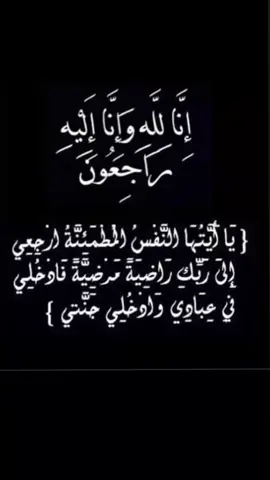 إِنَّا لِلَّهِ وَإِنَّا إِلَيْهِ
رَاجِعُونَ
{ يَا أَيَّتُهَا النَّفْسُ الْمُطْمَئِنَّةُ ارْجِعِي
إِلَىٰ رَبِّكِ رَاضِيَةً مَرْضِيَّةً فَادْخُلِي
فِي عِبَادِي وَادْخُلِي جَنَّتِي }